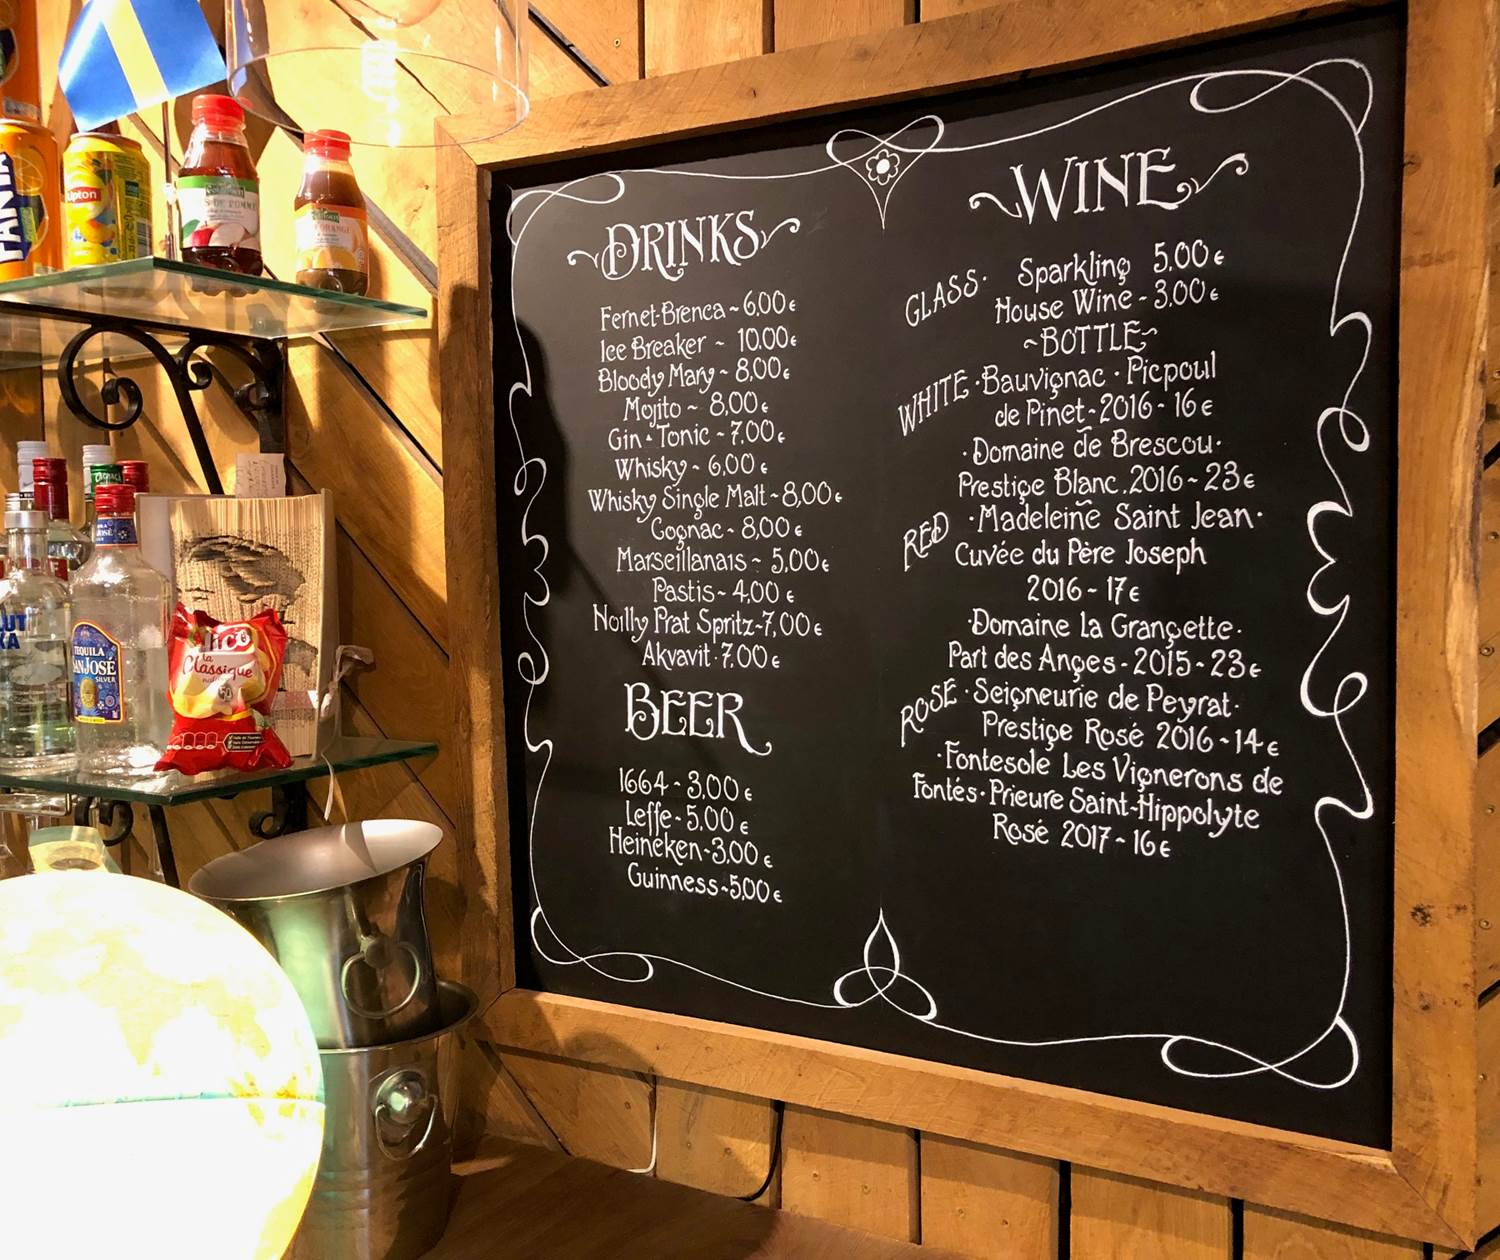 FANTA
Lipton
TEQUILA
SAN JOSÉ
SILVER
la
Classique
~DRINKS~
Fernet-Brenca ~ 6,00€
Ice Breaker ~ 10.00€
Bloody Mary ~ 8,00€
Mojito ~ 8,00€
Gin · Tonic ~ 7,00€
Whisky ~ 6,00€
Whisky Single Malt ~ 8,00€
Cognac ~ 8,00€
Marseillanais ~ 5,00€
Pastis ~ 4,00€
Noilly Prat Spritz ~ 7,00€
Akvavit · 7,00€
BEER
1664 ~ 3,00€
Leffe ~ 5,00€
Heineken ~ 3,00€
Guinness ~ 5,00€
~WINE~
GLASS · Sparkling 5,00€
House Wine ~ 3,00€
~BOTTLE~
WHITE · Bauvignac · Picpoul
de Pinet ~ 2016 ~ 16€
· Domaine de Brescou ·
Prestige Blanc . 2016 ~ 23€
RED · Madeleine Saint Jean ·
Cuvée du Père Joseph
2016 ~ 17€
· Domaine La Grangette ·
Part des Anges ~ 2015 ~ 23€
ROSÉ · Seigneurie de Peyrat ·
Prestige Rosé 2016 ~ 14€
· Fontesole Les Vignerons de
Fontés · Prieure Saint-Hippolyte
Rosé 2017 ~ 16€